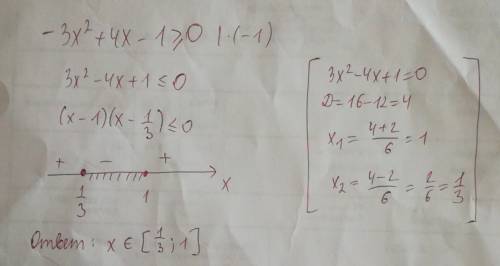 -3x²+4x-1⩾0 |·(-1)
3x²-4x+1≤0
(x-1)(x-1/3)≤0
+ - +
1/3 1 x
Ответ: x ∈ [1/3; 1]
3x²-4x+1=0
D=16-12=4
x₁=(4+2)/6=1
x₂=(4-2)/6=2/6=1/3